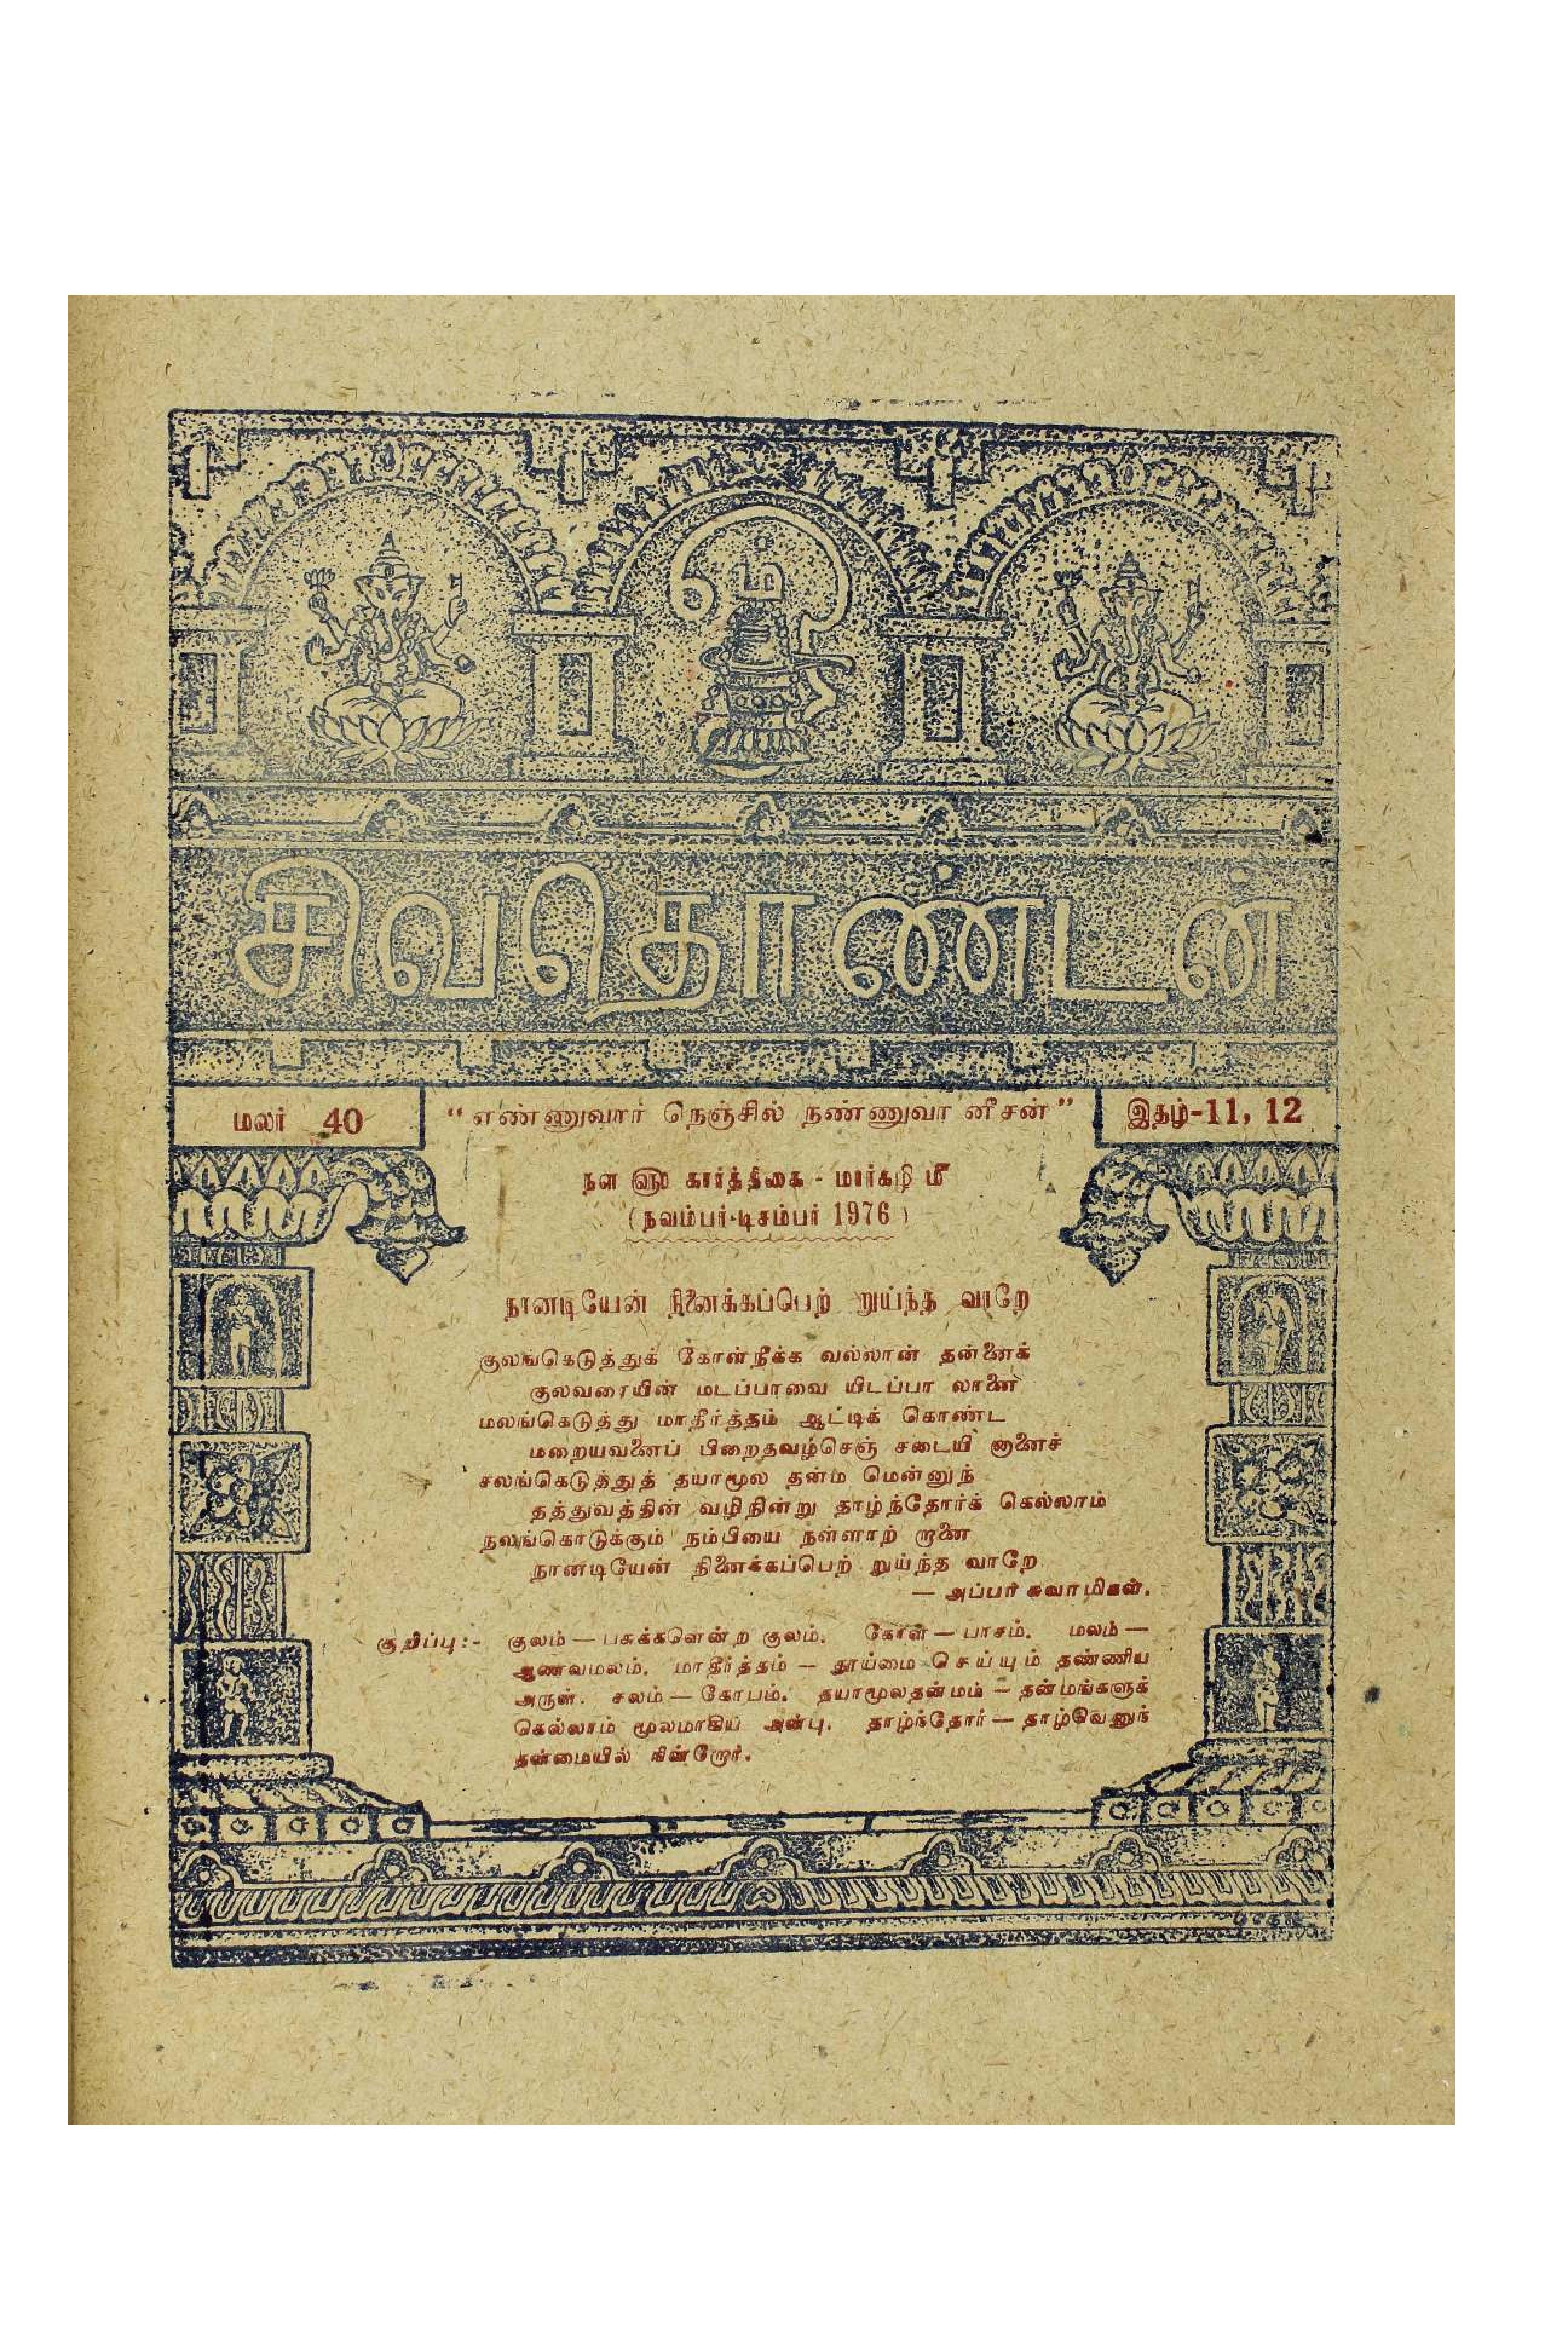 ஓம்
சிவதொண்டன்
மலர் 40
“எண்ணுவார் நெஞ்சில் நண்ணுவா னீசன்”
இதழ்-11, 12
நள ௵ கார்த்திகை - மார்கழி ௴
(நவம்பர்-டிசம்பர் 1976)
நானடியேன் நினைக்கப்பெற் றுய்ந்த வாறே
குலங்கெடுத்துக் கோள்நீக்க வல்லான் தன்னைக்
குலவரையின் மடப்பாவை யிடப்பா லானை
மலங்கெடுத்து மாதீர்த்தம் ஆட்டிக் கொண்ட
மறையவனைப் பிறைதவழ்செஞ் சடையி னானைச்
சலங்கெடுத்துத் தயாமூல தன்ம மென்னுந்
தத்துவத்தின் வழிநின்று தாழ்ந்தோர்க் கெல்லாம்
நலங்கொடுக்கும் நம்பியை நள்ளாற் றானை
நானடியேன் நினைக்கப்பெற் றுய்ந்த வாறே
— அப்பர் சுவாமிகள்.
குறிப்பு:- குலம் — பசுக்களென்ற குலம். கோள் — பாசம். மலம் —
ஆணவமலம். மாதீர்த்தம் — தூய்மை செய்யும் தண்ணிய
அருள். சலம் — கோபம். தயாமூலதன்மம் — தன்மங்களுக்
கெல்லாம் மூலமாகிய அன்பு. தாழ்ந்தோர் — தாழ்வெனுந்
தன்மையில் நின்றோர்.